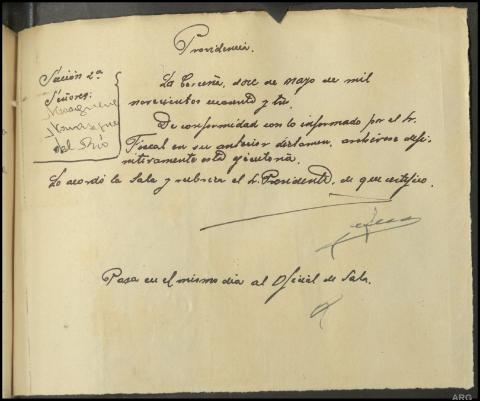 Providencia.
Sección 2ª
Señores:
del Río
La Coruña, doce de Mayo de mil
novecientos cuarenta y tres.
De conformidad con lo informado por el Sr.
Fiscal en su anterior dictamen, archívese defi-
nitivamente esta ejecutoria.
Lo acordó la Sala y rubrica el Sr. Presidente, de que certifico.
Pasa en el mismo día al Oficial de Sala.
ARG